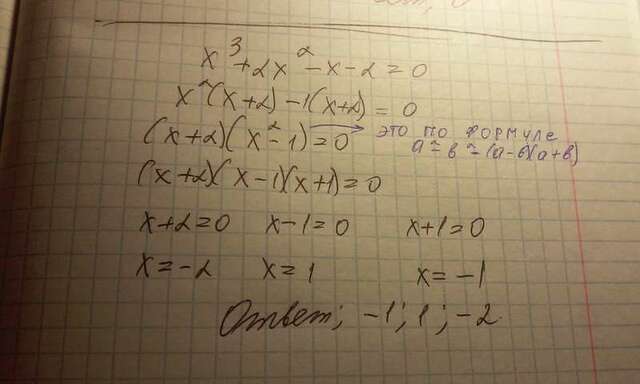 x³+2x²-x-2=0
x²(x+2)-1(x+2)=0
(x+2)(x²-1)=0 → это по формуле
a²-b²=(a-b)(a+b)
(x+2)(x-1)(x+1)=0
x+2=0 x-1=0 x+1=0
x=-2 x=1 x=-1
Ответ; -1; 1; -2